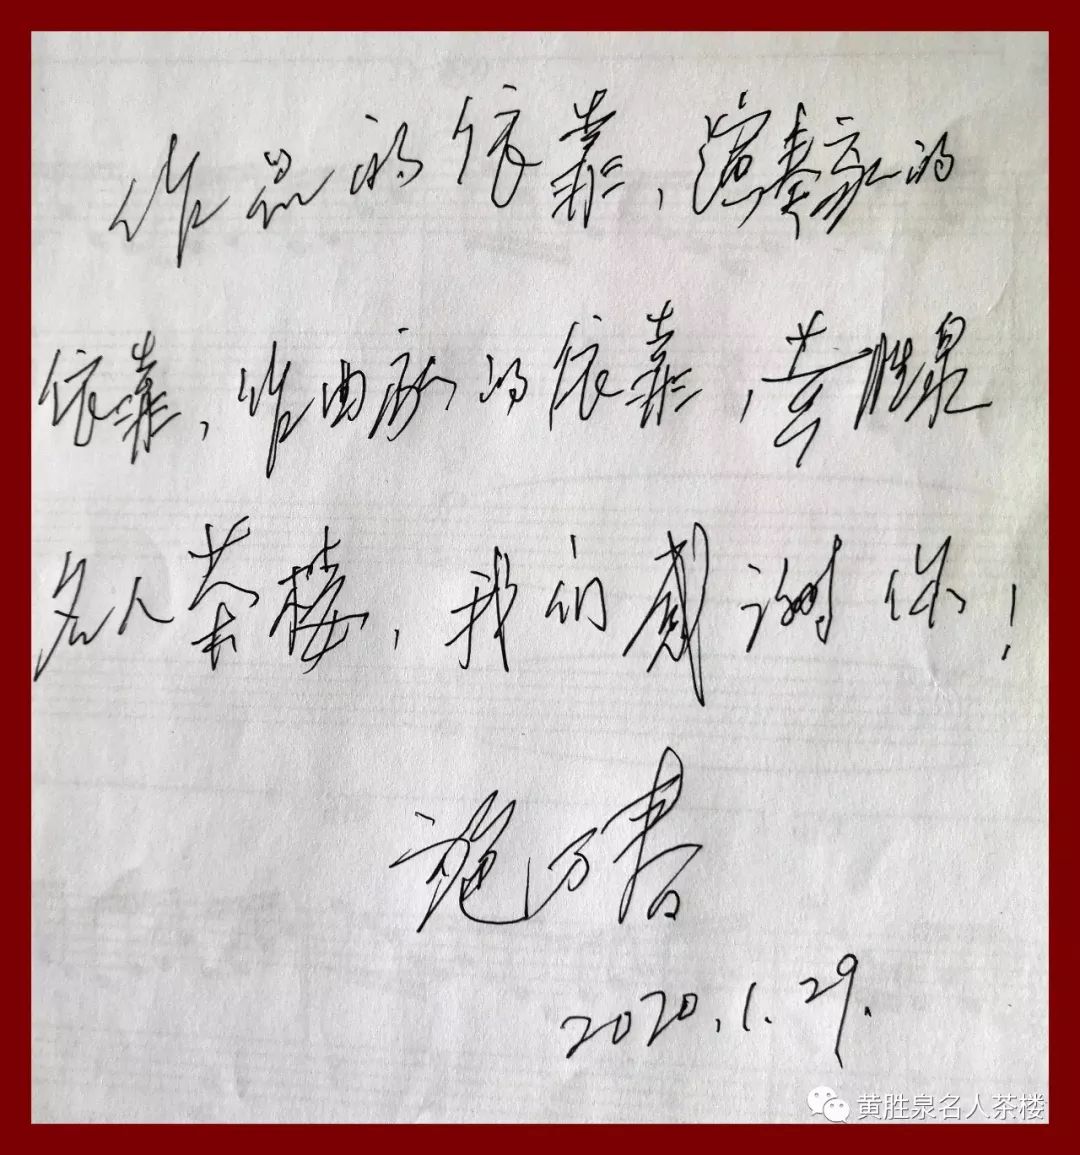 作品的依靠，演奏家的
依靠，作曲家的依靠，黄胜泉
名人茶楼，我们感谢你！
施万春
2020.1.29.
黄胜泉名人茶楼